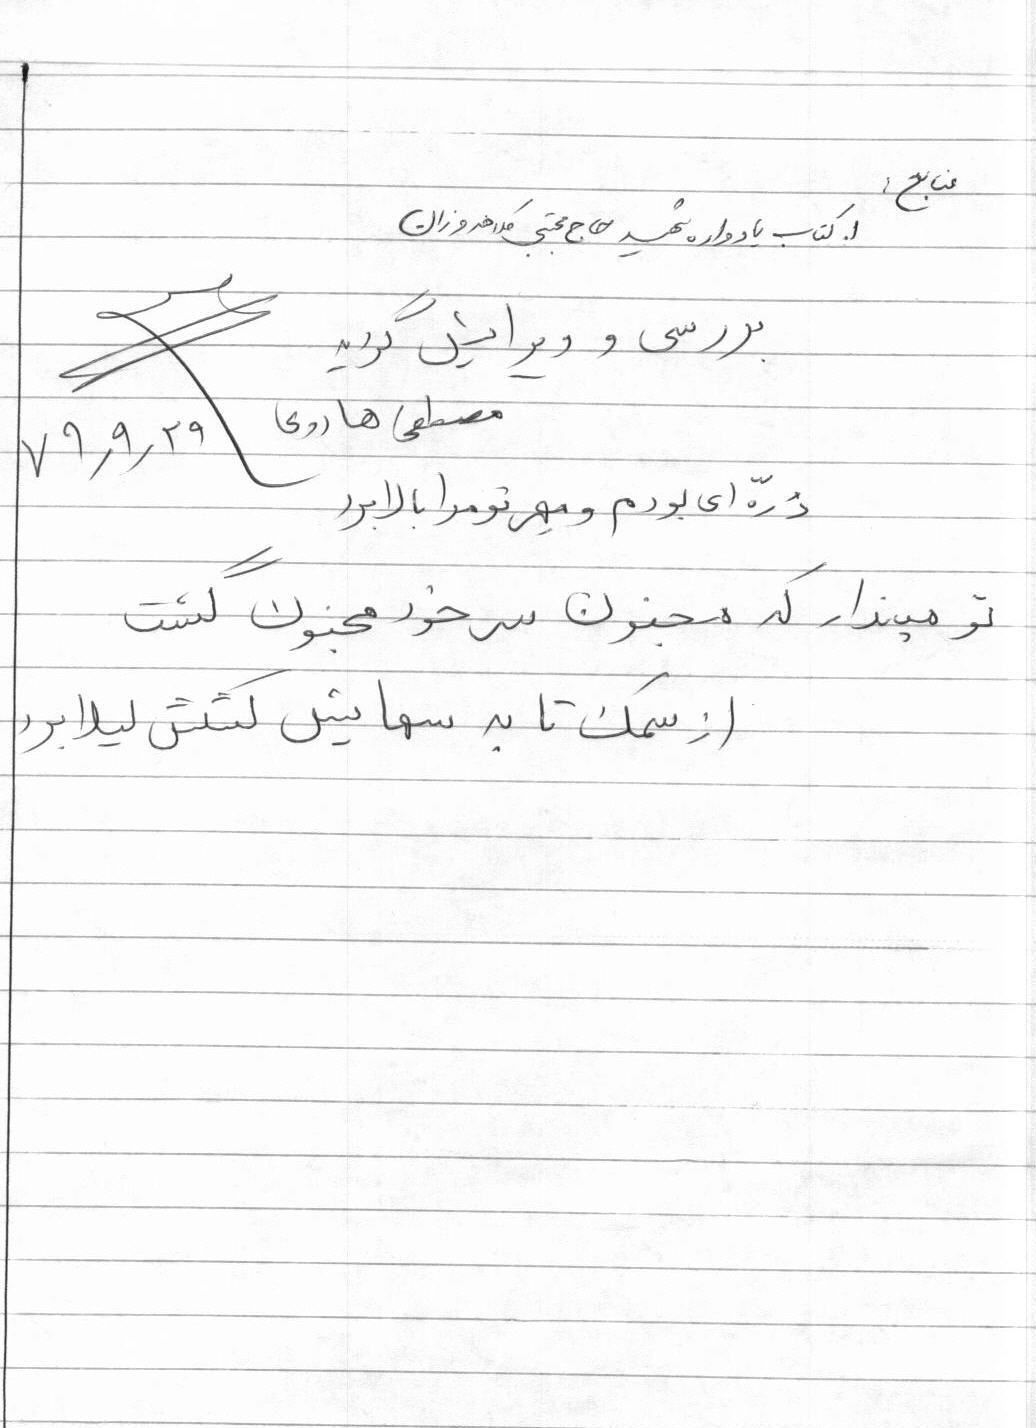 منابع :
۱. کتاب یادواره شهید حاج مجتبی کلاهدوزان
بررسی و ویرایش گردید
مصطفی هاروی
۷۹/۹/۲۹
ذرّه ای بودم و مهر تو مرا بالا برد
تو مپندار که مجنون سر خود مجنون گشت
از سمک تا به سهایش کشش لیلا برد